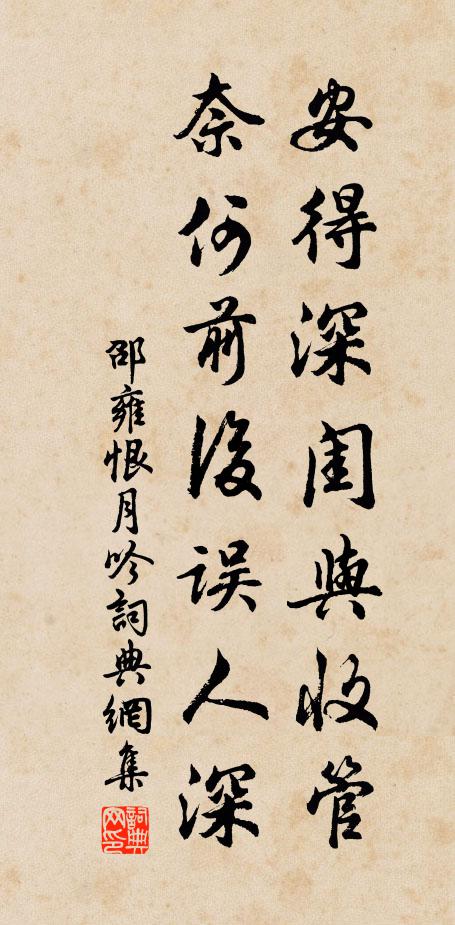 安得深闺與收管
奈何前後误人深
邵雍恨月吟詞典網集
詞典
网印